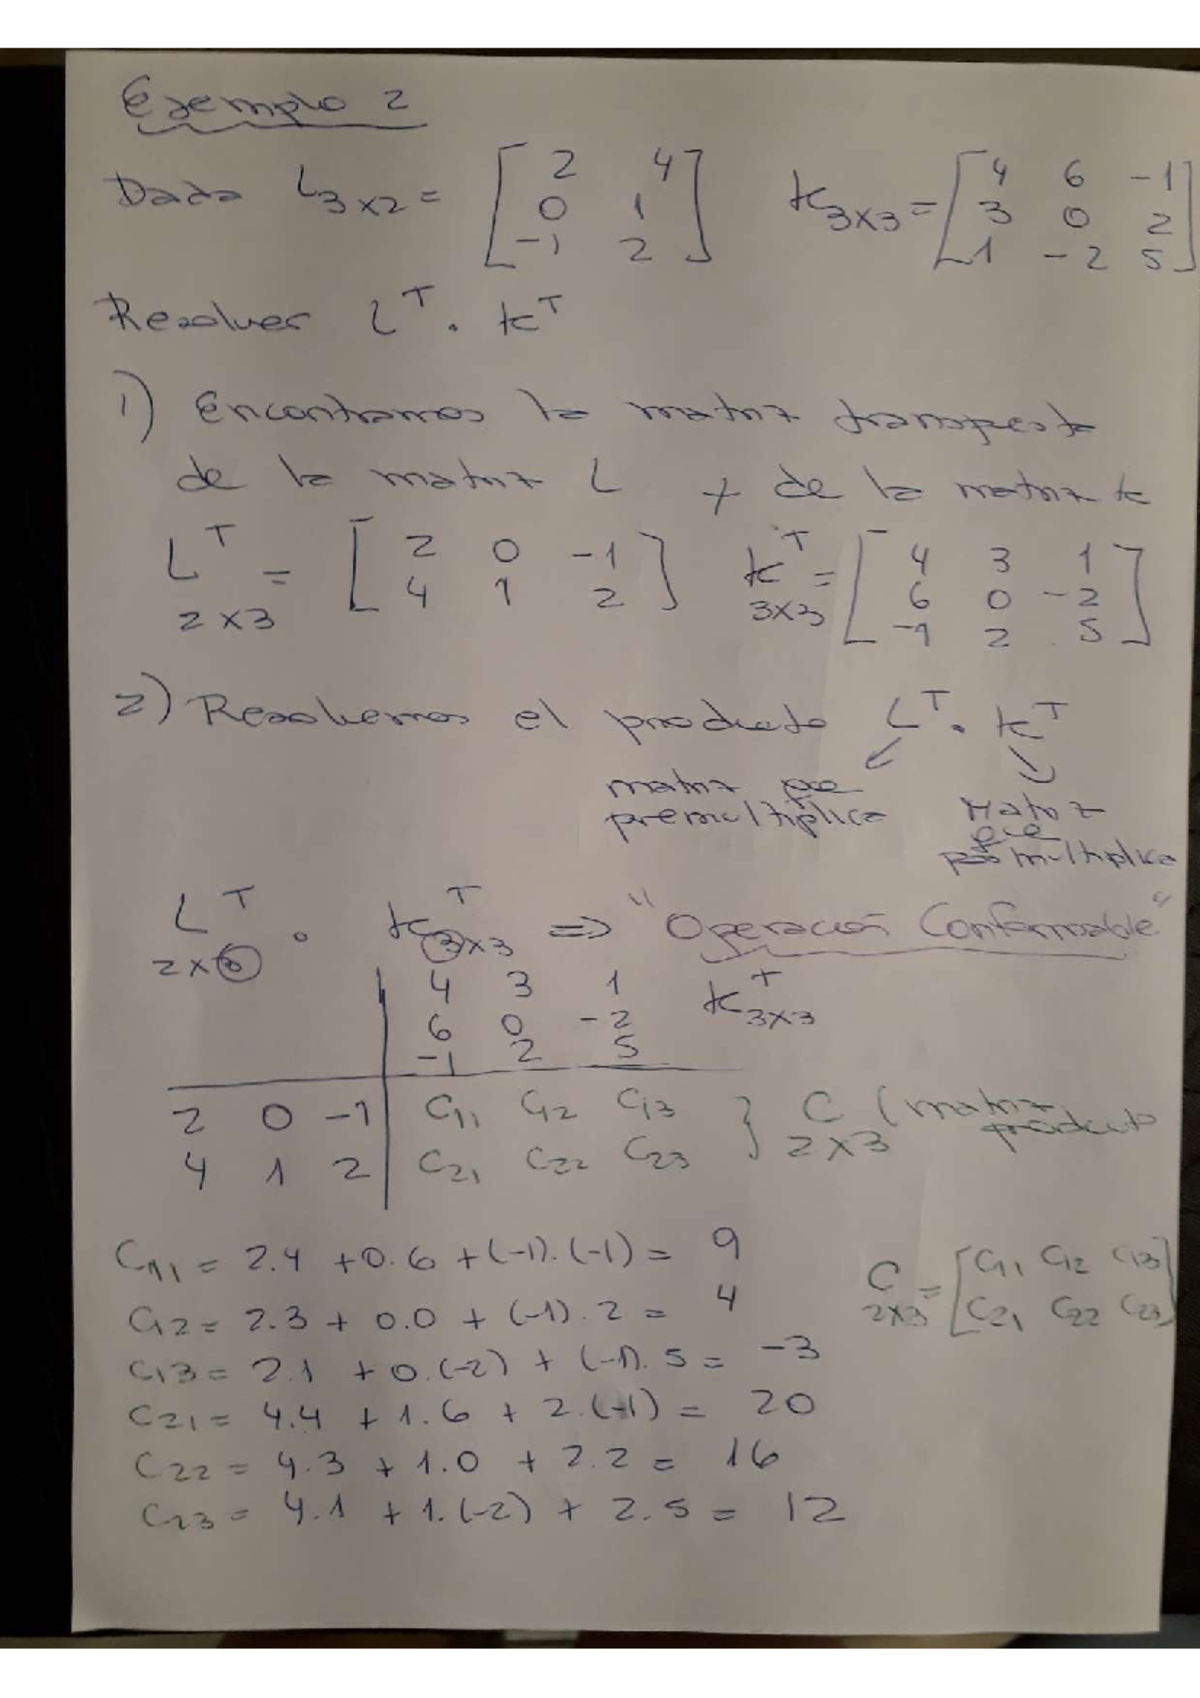 Ejemplo 2
Dada L3x2 = [ 2 4 K3x3 = [ 4 6 -1
0 1 3 0 2
-1 2 ] 1 -2 5 ]
Resolver L^T . K^T
1) Encontramos la matriz transpuesta
de la matriz L y de la matriz K
L^T 2x3 = [ 2 0 -1 K^T 3x3 = [ 4 3 1
4 1 2 ] 6 0 -2
-1 2 5 ]
2) Resolvemos el producto L^T . K^T
matriz que
premultiplica
Matriz
que
posmultiplica
L^T 2x3 . K^T 3x3 => "Operación Conformable"
4 3 1 K^T 3x3
6 0 -2
-1 2 5
2 0 -1 C11 C12 C13 } C 2x3 (matriz
4 1 2 C21 C22 C23 producto
C11 = 2.4 + 0.6 + (-1).(-1) = 9
C12 = 2.3 + 0.0 + (-1).2 = 4
C13 = 2.1 + 0.(-2) + (-1).5 = -3
C21 = 4.4 + 1.6 + 2.(-1) = 20
C22 = 4.3 + 1.0 + 2.2 = 16
C23 = 4.1 + 1.(-2) + 2.5 = 12
C 2x3 = [ C11 C12 C13
C21 C22 C23 ]